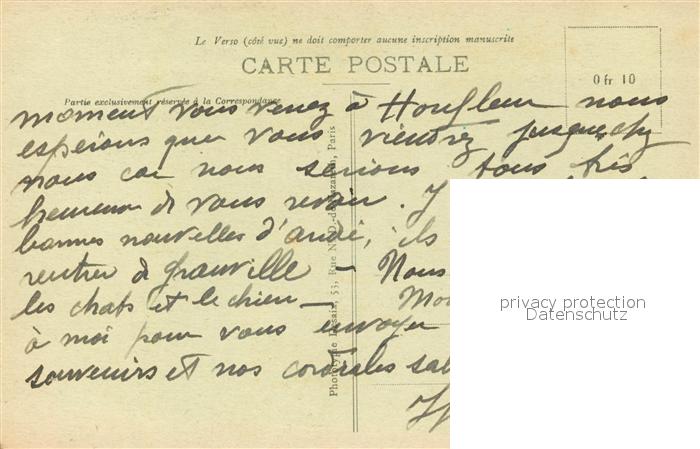 Le Verso (côté vue) ne doit comporter aucune inscription manuscrite
CARTE POSTALE
0 fr 10
Partie exclusivement réservée à la Correspondance
moment vous venez à Honfleur nous
espérons que vous viendrez jusque chz
nous car nous serions tous très
heureux de vous revoir. J
bonnes nouvelles d'andé, ils
rentrer à Granville - Nous
les chats et le chien -
à moi pour vous envoyer
souvenirs et nos cordiales sal
Phototypie Desaix, 53, Rue N.-D.-de-Nazareth, Paris
privacy protection
Datenschutz